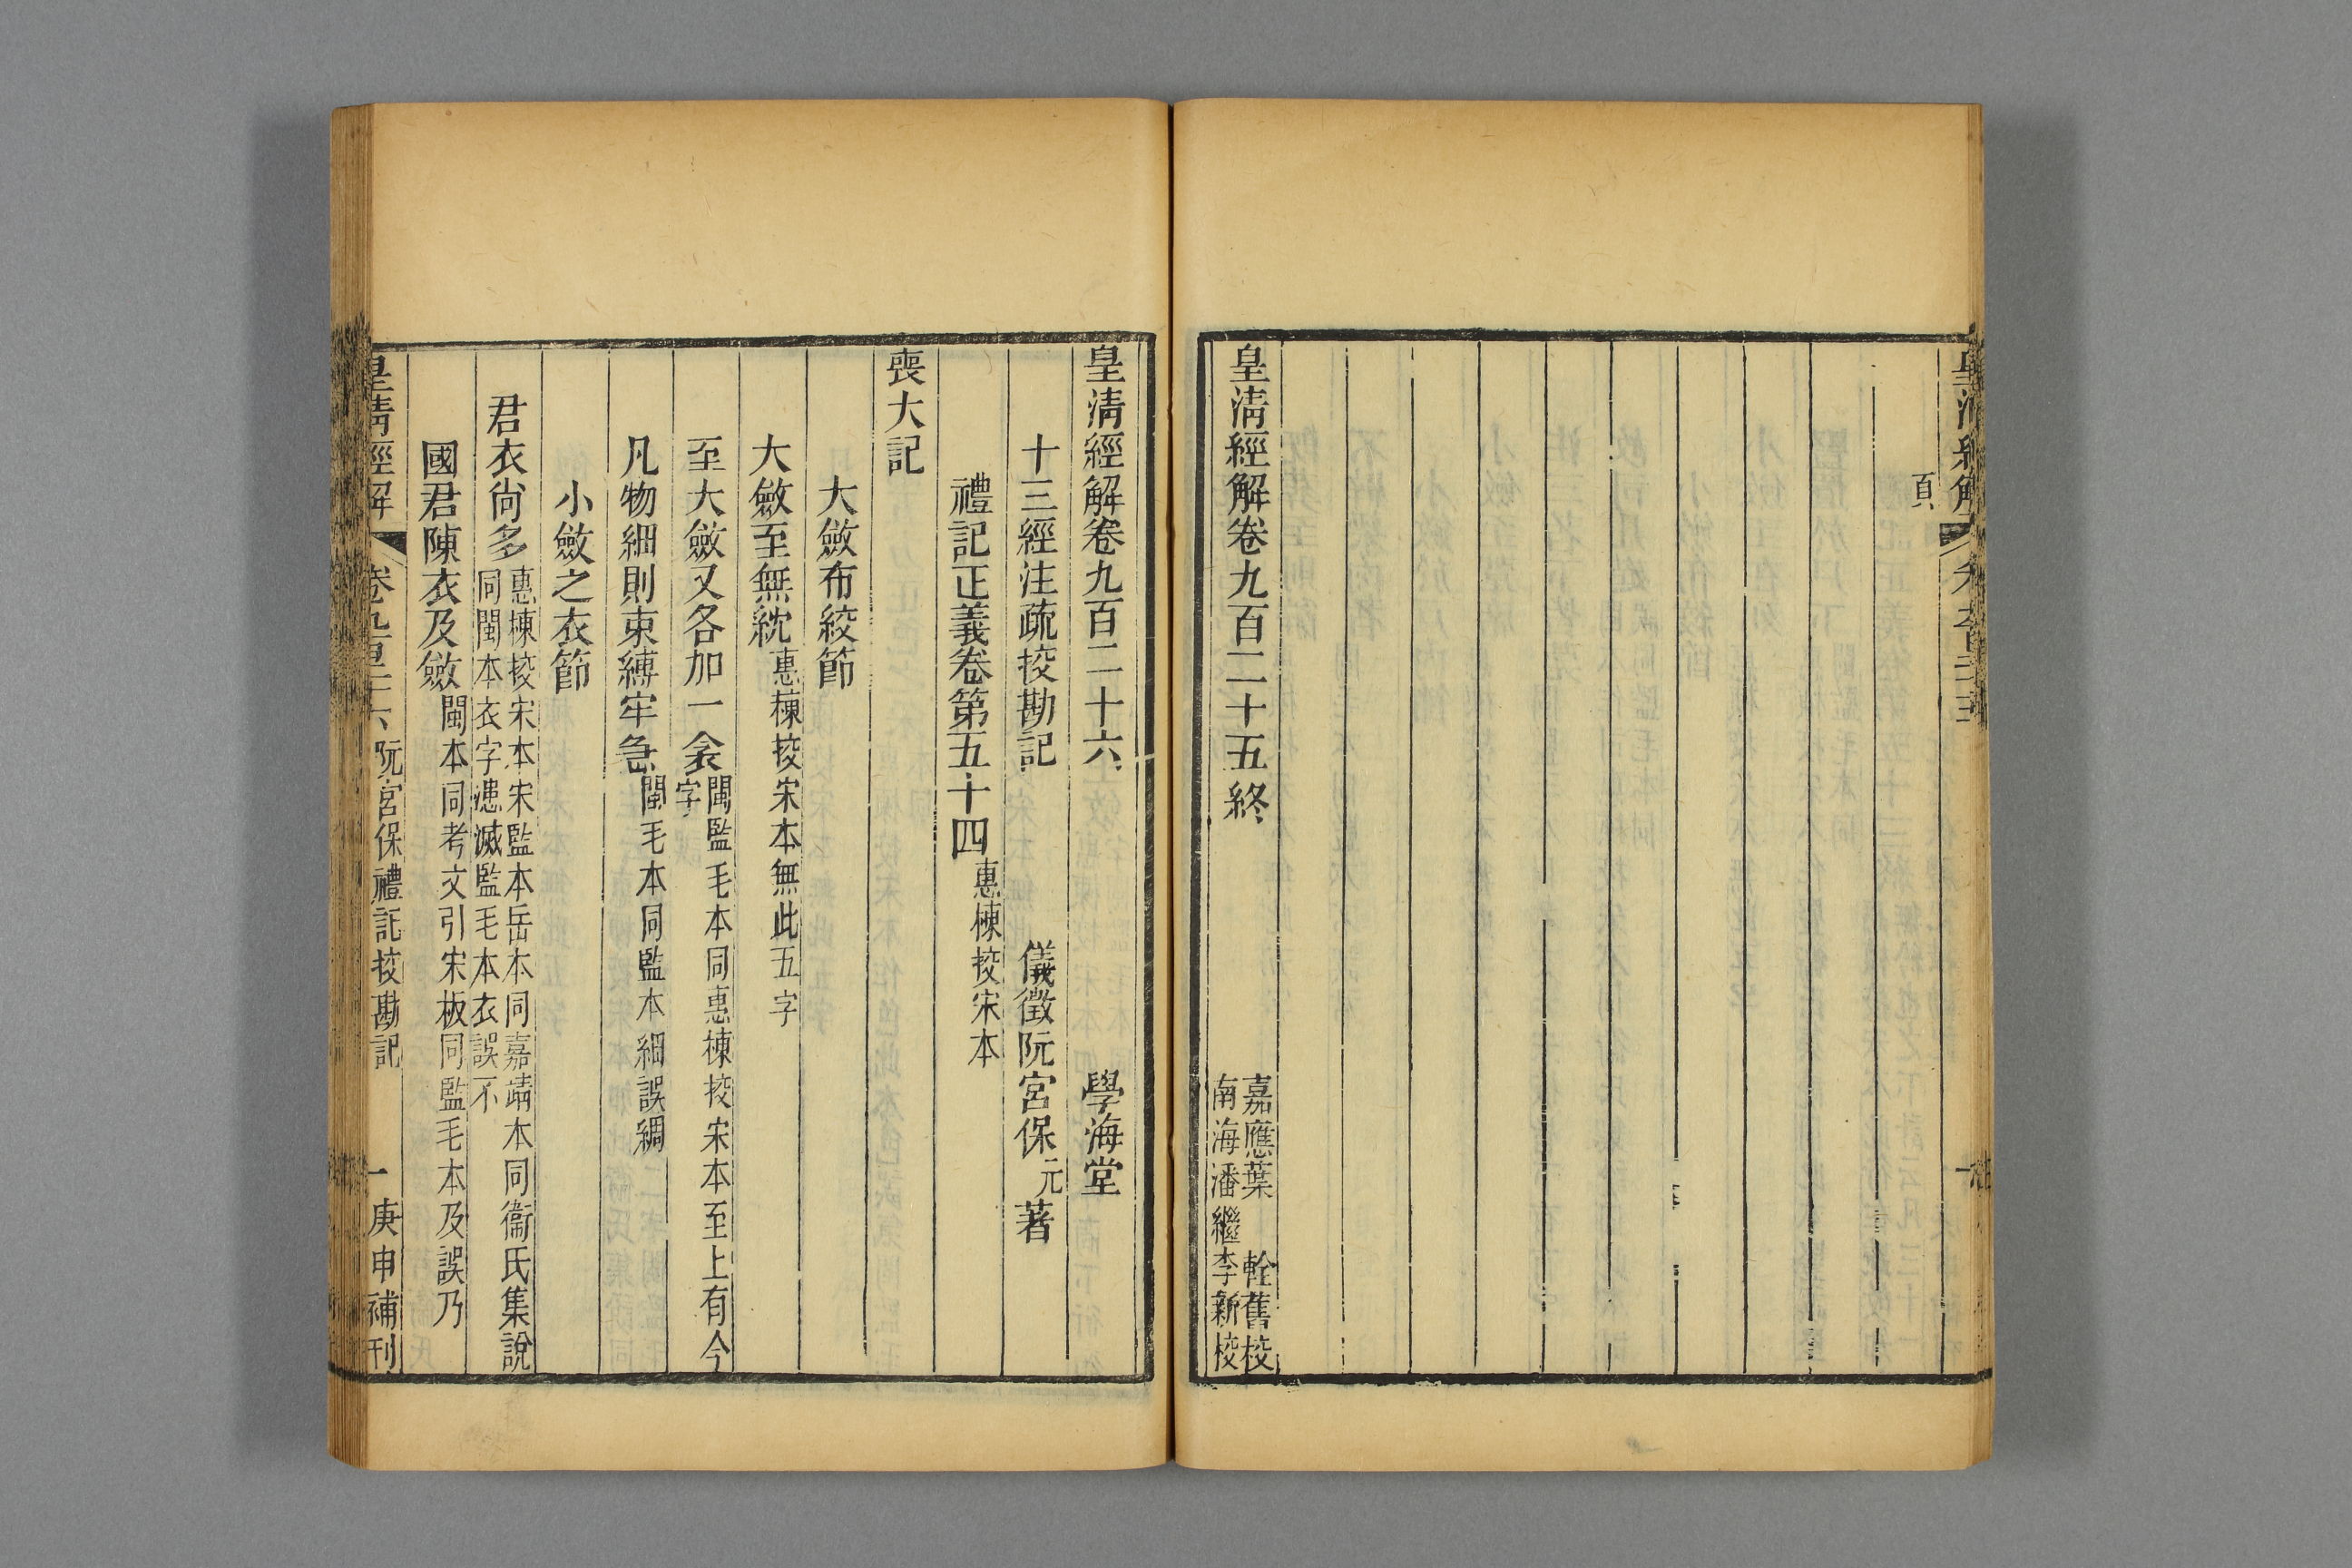 頁
皇清經解卷九百二十五終
嘉應葉軨舊校
南海潘繼李新校
皇清經解卷九百二十六 學海堂
十三經注疏挍勘記 儀徵阮宮保元著
禮記正義卷第五十四惠棟挍宋本
喪大記
大斂布絞節
大斂至無紞惠棟挍宋本無此五字
至大斂又各加一衾閩監毛本同惠棟挍宋本至上有今字
凡物細則束縛牢急閩毛本同監本細誤綢
小斂之衣節
君衣尙多惠棟挍宋本宋監本岳本同嘉靖本同衞氏集說同閩本衣字漶滅監毛本衣誤不
國君陳衣及斂閩本同考文引宋板同監毛本及誤乃
皇清經解 卷九百二十六 阮宮保禮記挍勘記 一 庚申補刊